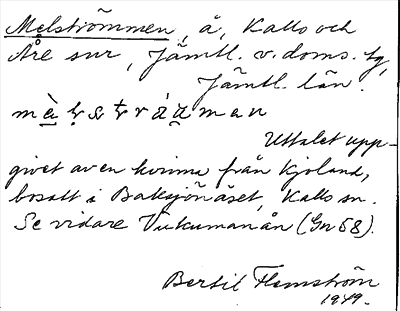 Melströmmen, å, Kalls och
Åre snr, Jämtl. v. doms. tg,
Jämtl. län.
Uttalet upp-
givet av en kvinna från Kjoland,
bosatt i Baksjönäset, Kalls sn.
Se vidare Vukumanån (Gn 58).
Bertil Flemström
1949.